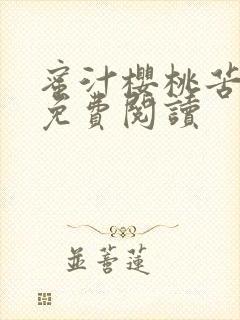 蜜汁櫻桃苦
免費閱讀
並蓄蓮